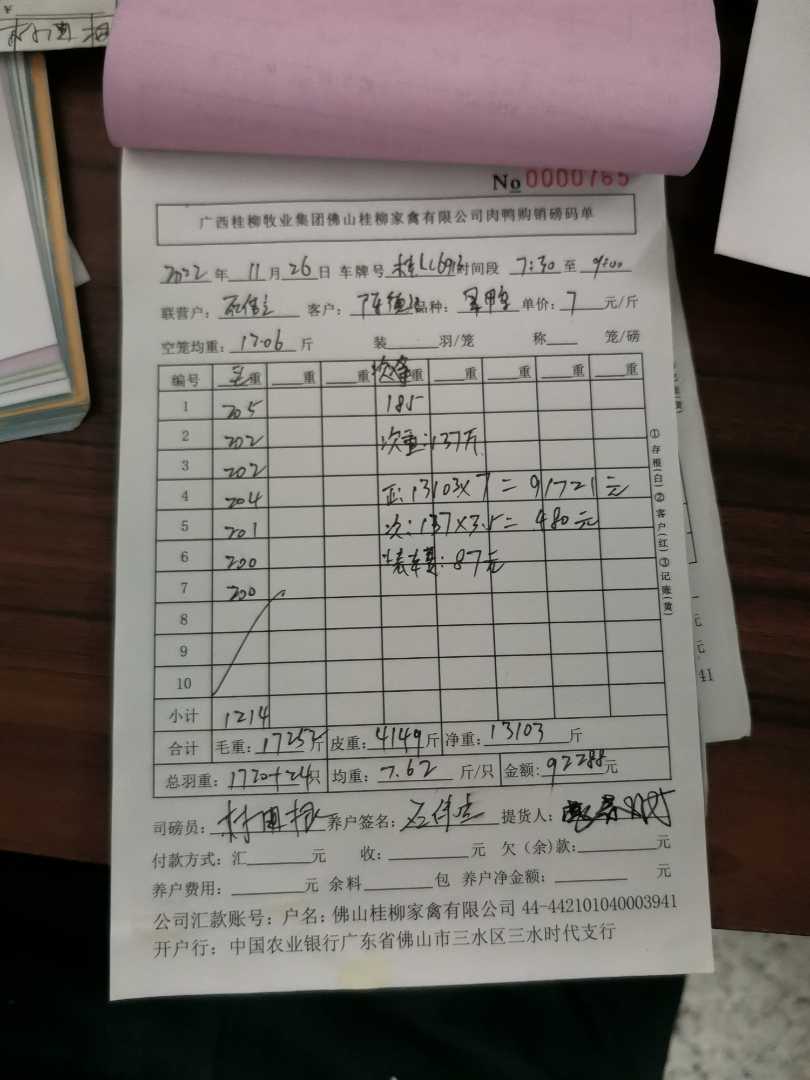 No 0000765
广西桂柳牧业集团佛山桂柳家禽有限公司肉鸭购销磅码单
2022年 11月26日 车牌号 桂 时间段 7:30 至 9:00
联营户: 客户: 品种: 单价: 7 元/斤
空笼均重: 17.06 斤 装 羽/笼 称 笼/磅
编号 毛重 重 重 重 重 重 重 重
1 205 185
2 202 次重: 137斤
3 202
4 204 正: 13103×7=91721元
5 201 次: 137×3.5=480元
6 200 装车费: 87元
7 200
8
9
10
小计 1214
合计 毛重: 17252斤 皮重: 4149斤 净重: 13103 斤
总羽重: 1720+24只 均重: 7.62 斤/只 金额: 92288元
司磅员: 养户签名: 提货人:
付款方式: 汇 元 收: 元 欠(余)款: 元
养户费用: 元 余料 包 养户净金额: 元
公司汇款账号: 户名: 佛山桂柳家禽有限公司 44-442101040003941
开户行: 中国农业银行广东省佛山市三水区三水时代支行
①存根(白)②客户(红)③记账(黄)